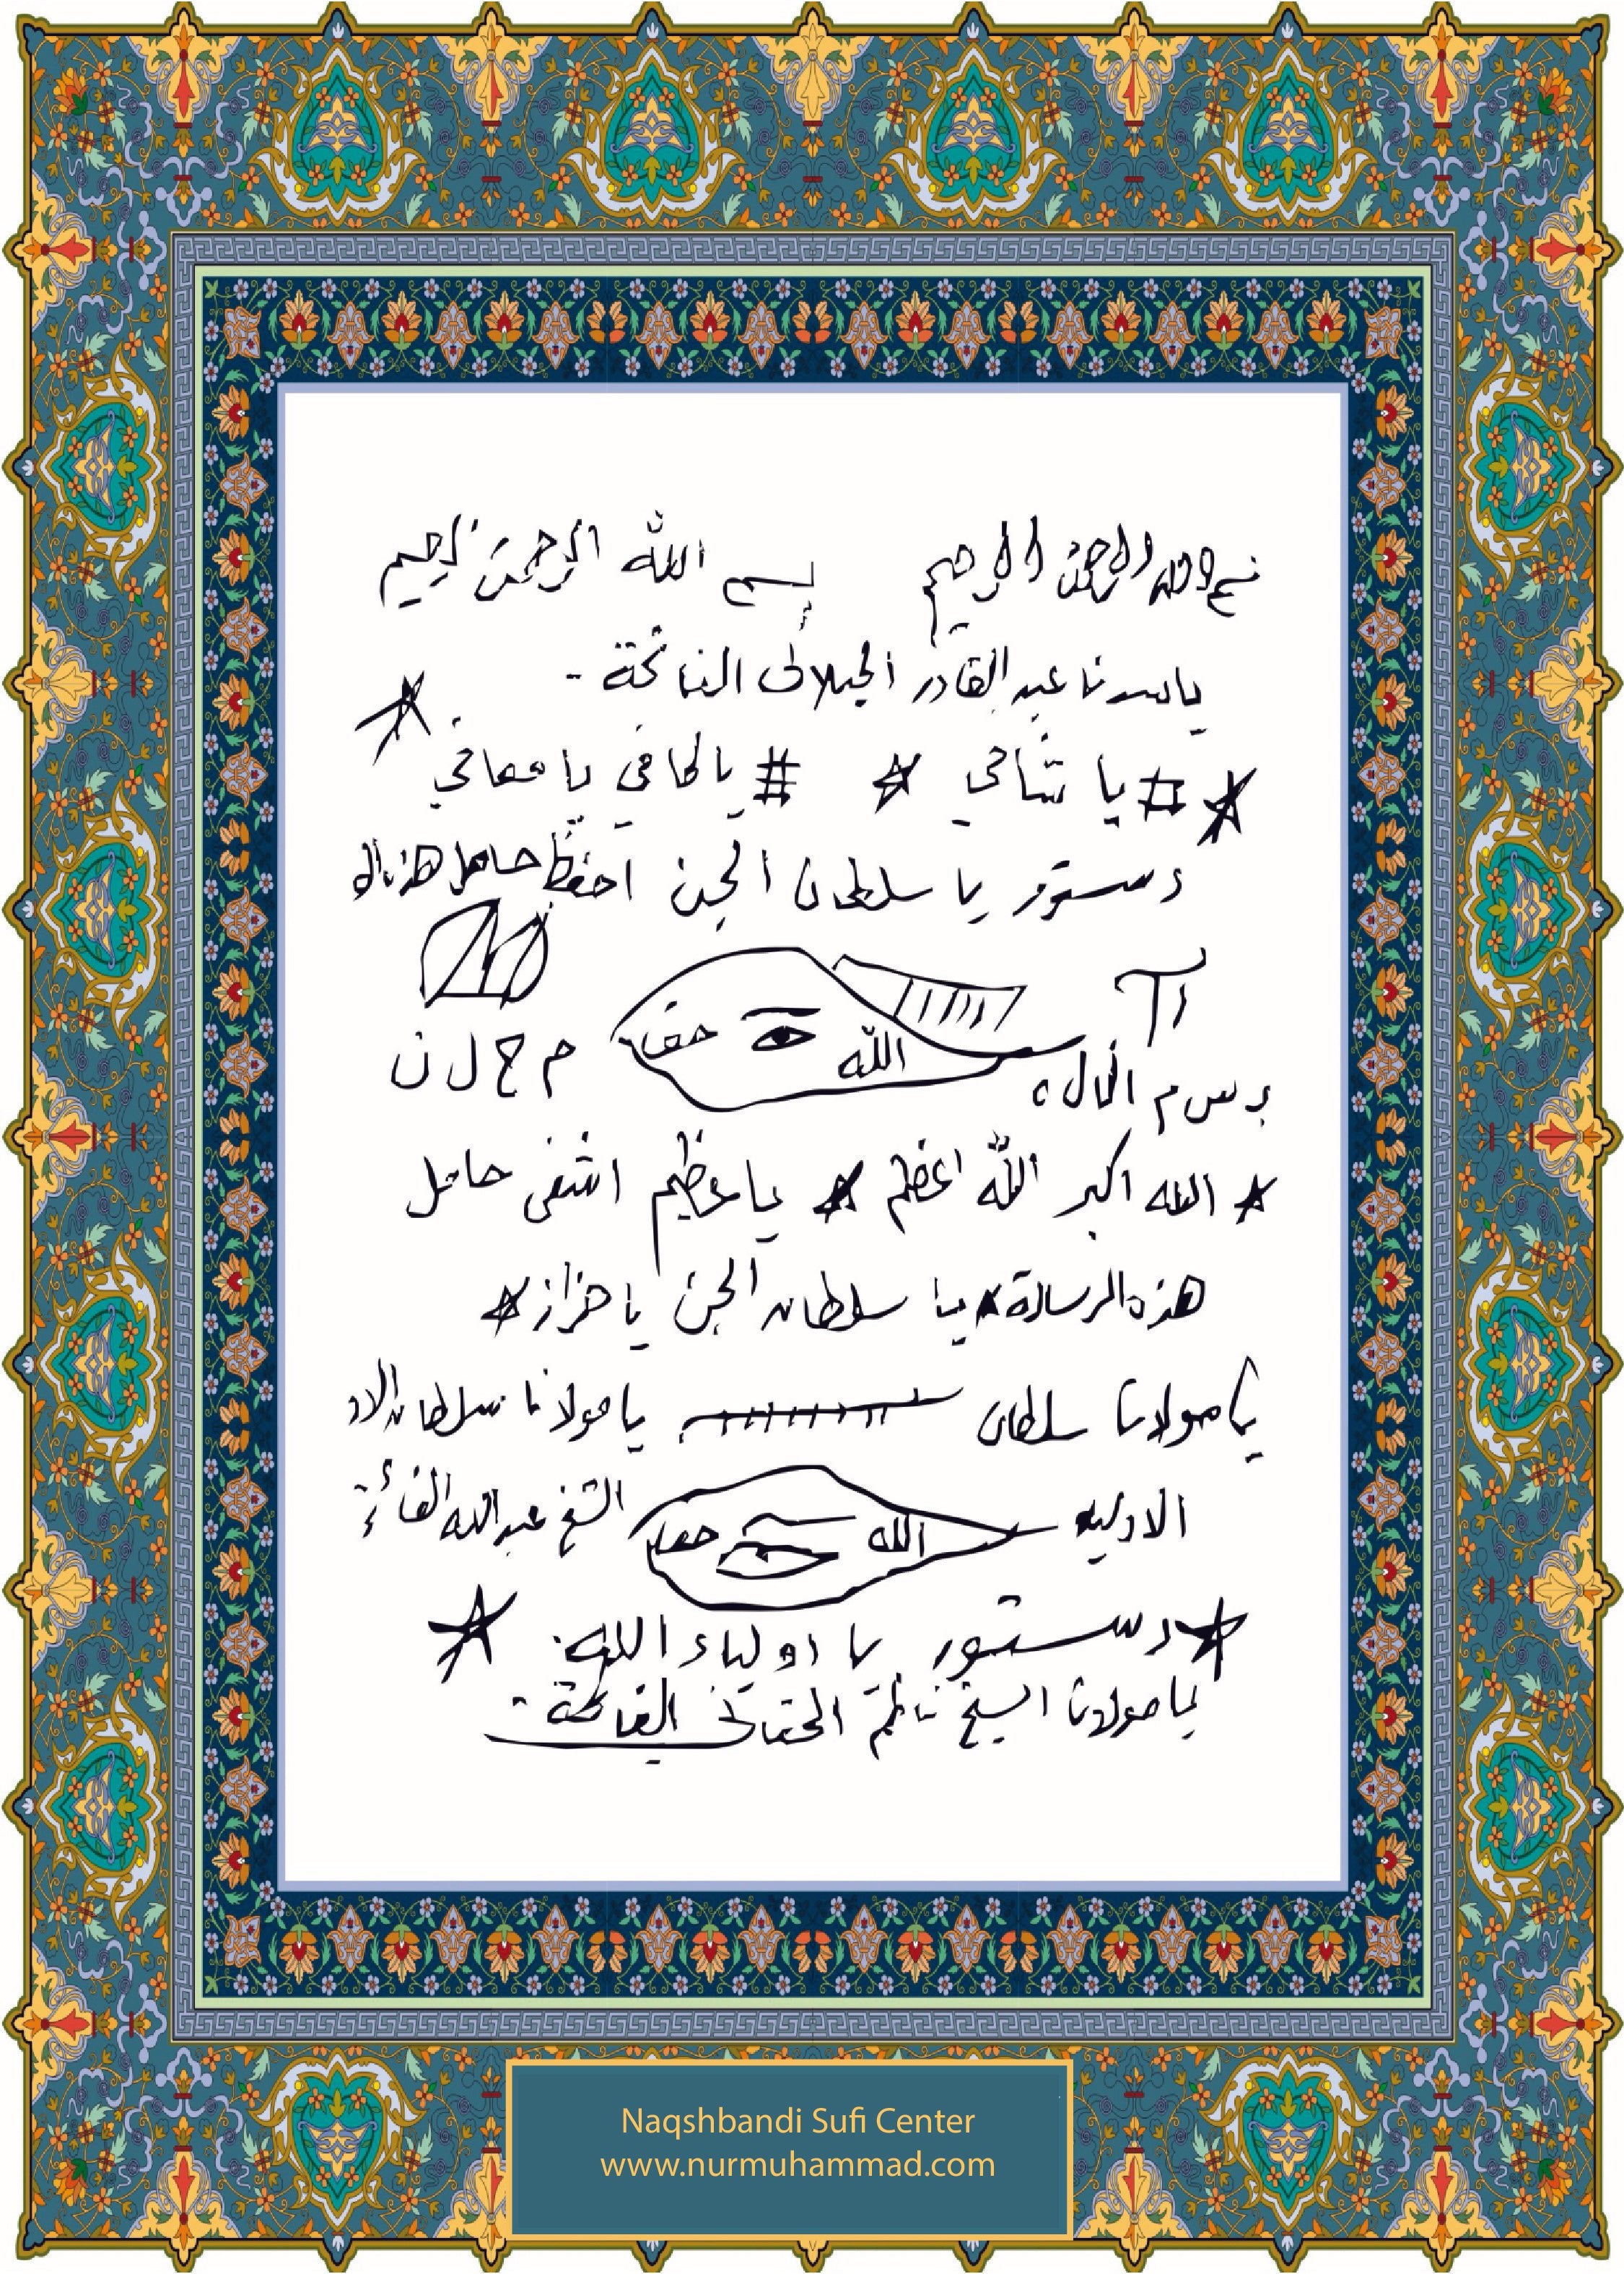 بسم الله الرحمن الرحيم بسم الله الرحمن الرحيم
يا سيدنا عبد القادر الجيلاني الفاتحة
# يا شافي # يا كافي يا معافي
دستور يا سلطان الجن احفظ حامل هذه ال
الله حقا
م ح ل ن
ب س م ال ه
* الله اكبر الله اعظم * يا عظيم اشفي حامل
هذه الرسالة * يا سلطان الجن يا *
يا مولانا سلطان يا مولانا سلطان الاو
الاوليه الله حقا الشيخ عبد الله الفائز
* دستور يا اولياء الله *
يا مولانا الشيخ ناظم الحقاني الفاتحة
Naqshbandi Sufi Center
www.nurmuhammad.com